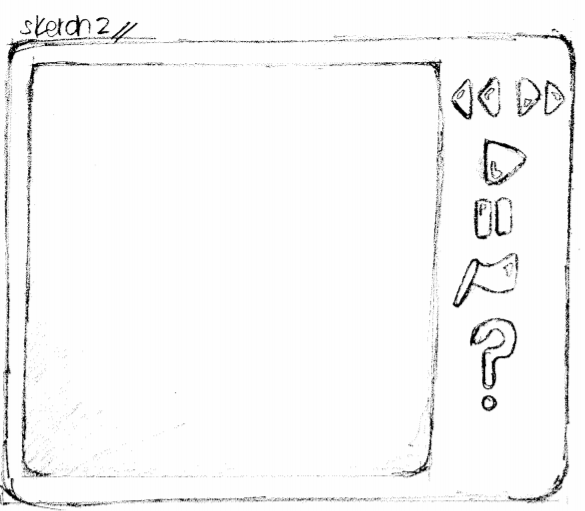 sketch 2 //
?